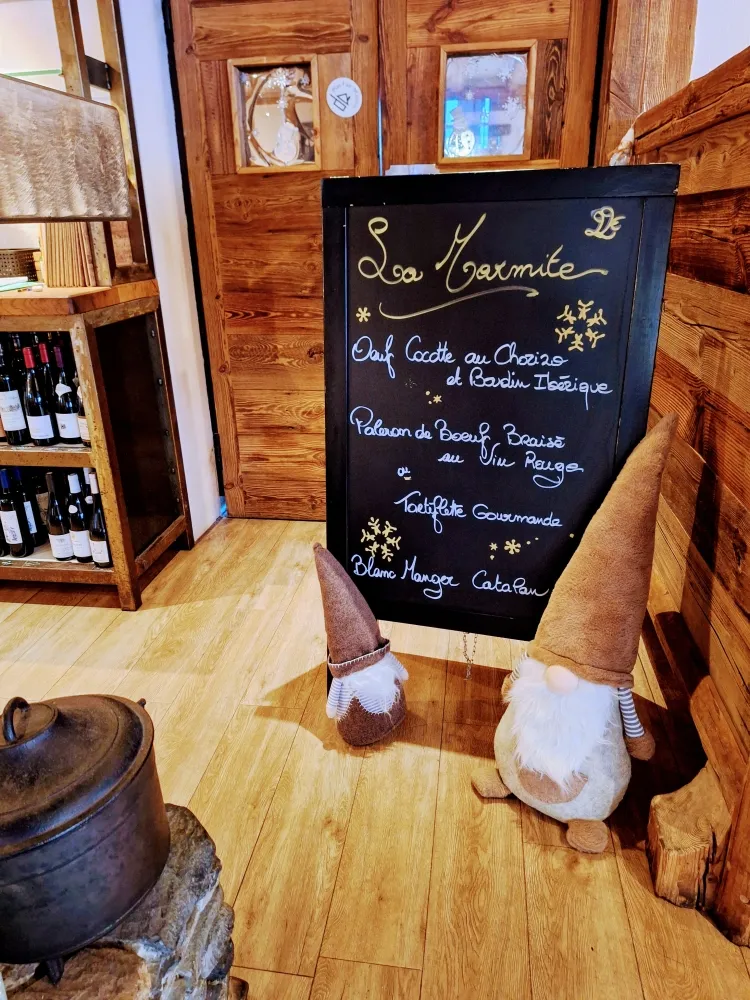 La Marmite
Oeuf Cocotte au Chorizo
et Boudin Ibérique
Paleron de Boeuf Braisé
au Vin Rouge
ou
Tartiflette Gourmande
Blanc Manger Catalan